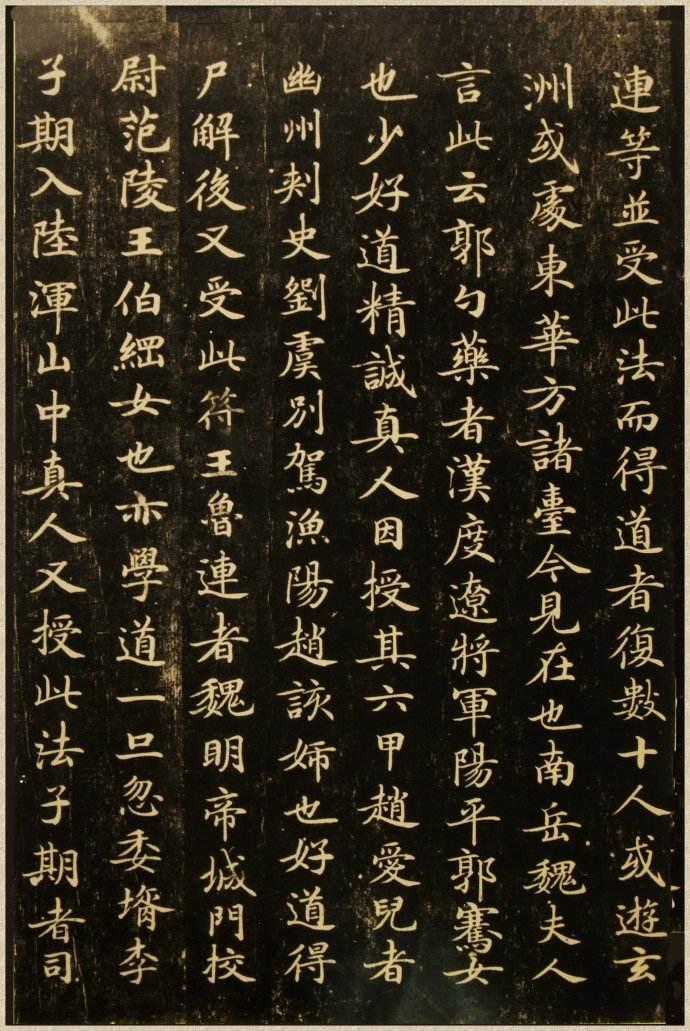 連等並受此法而得道者復數十人或遊玄
洲或處東華方諸臺今見在也南岳魏夫人
言此云郭勺藥者漢度遼將軍陽平郭騫女
也少好道精誠真人因授其六甲趙愛兒者
幽州刾史劉虞別駕漁陽趙該姉也好道得
尸解後又受此符王魯連者魏明帝城門校
尉范陵王伯綱女也亦學道一旦忽委壻李
子期入陸渾山中真人又授此法子期者司